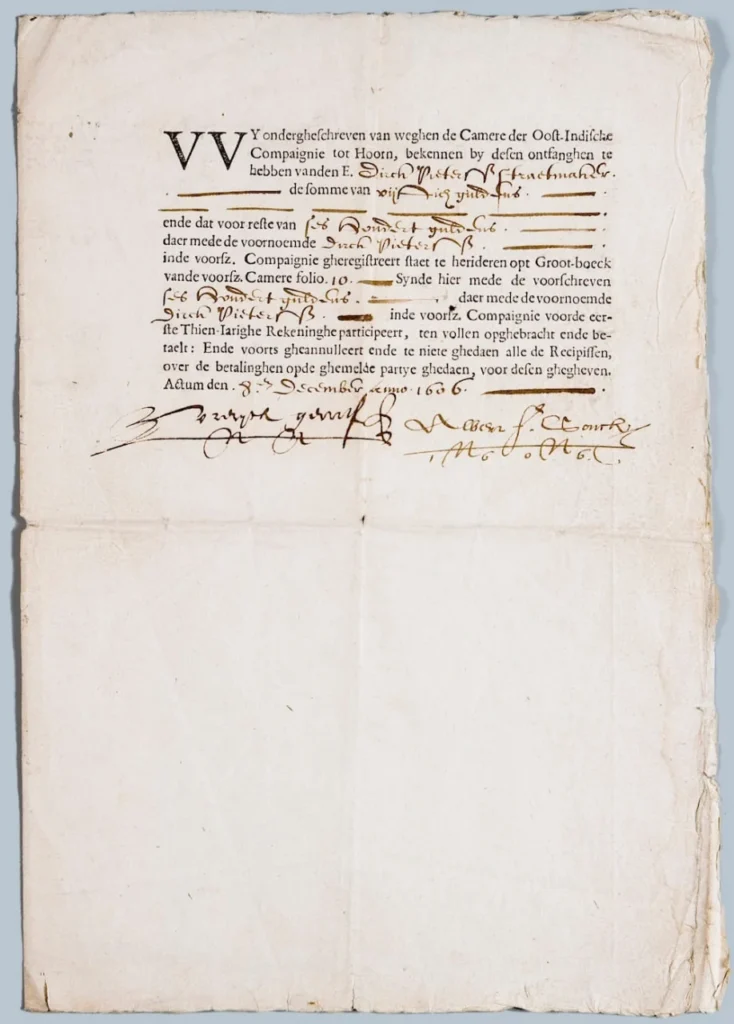 VVY ondergheschreven van weghen de Camere der Oost-Indische
Compaignie tot Hoorn, bekennen by desen ontfanghen te
hebben vanden E. Dirck Pieterss Straetmaker.
de somme van vijftich guldens.
ende dat voor reste van ses hondert guldens.
daer mede de voornoemde Dirck Pieterss.
inde voorsz. Compaignie gheregistreert staet te herideren opt Groot-boeck
vande voorsz. Camere folio. 10. Synde hier mede de voorschreven
ses hondert guldens. daer mede de voornoemde
Dirck Pieterss. inde voorsz. Compaignie voorde eer-
ste Thien-Iarighe Rekeninghe participeert, ten vollen opghebracht ende be-
taelt: Ende voorts gheannulleert ende te niete ghedaen alle de Recipissen,
over de betalinghen opde ghemelde partye ghedaen, voor desen ghegheven.
Actum den. December anno. 1606.